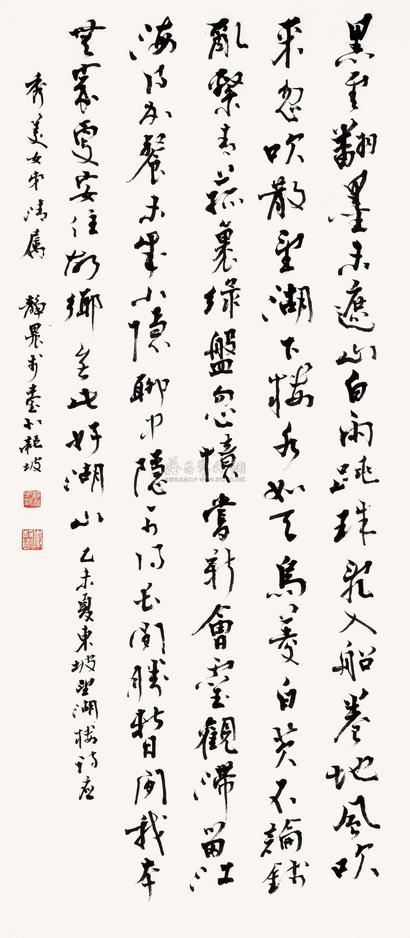 黑雲翻墨未遮山白雨跳珠亂入船卷地風吹
來忽吹散望湖下樓水如天烏菱白芡不論錢
亂繫青菰裹綠盤忽憶嘗新會靈觀滯留江
海得加餐未成小隱聊中隱可得長閒勝暫閒我本
無家更安往故鄉無此好湖山 乙未夏東坡望湖樓詩應
秀美女弟清屬 靜農於臺北龍坡